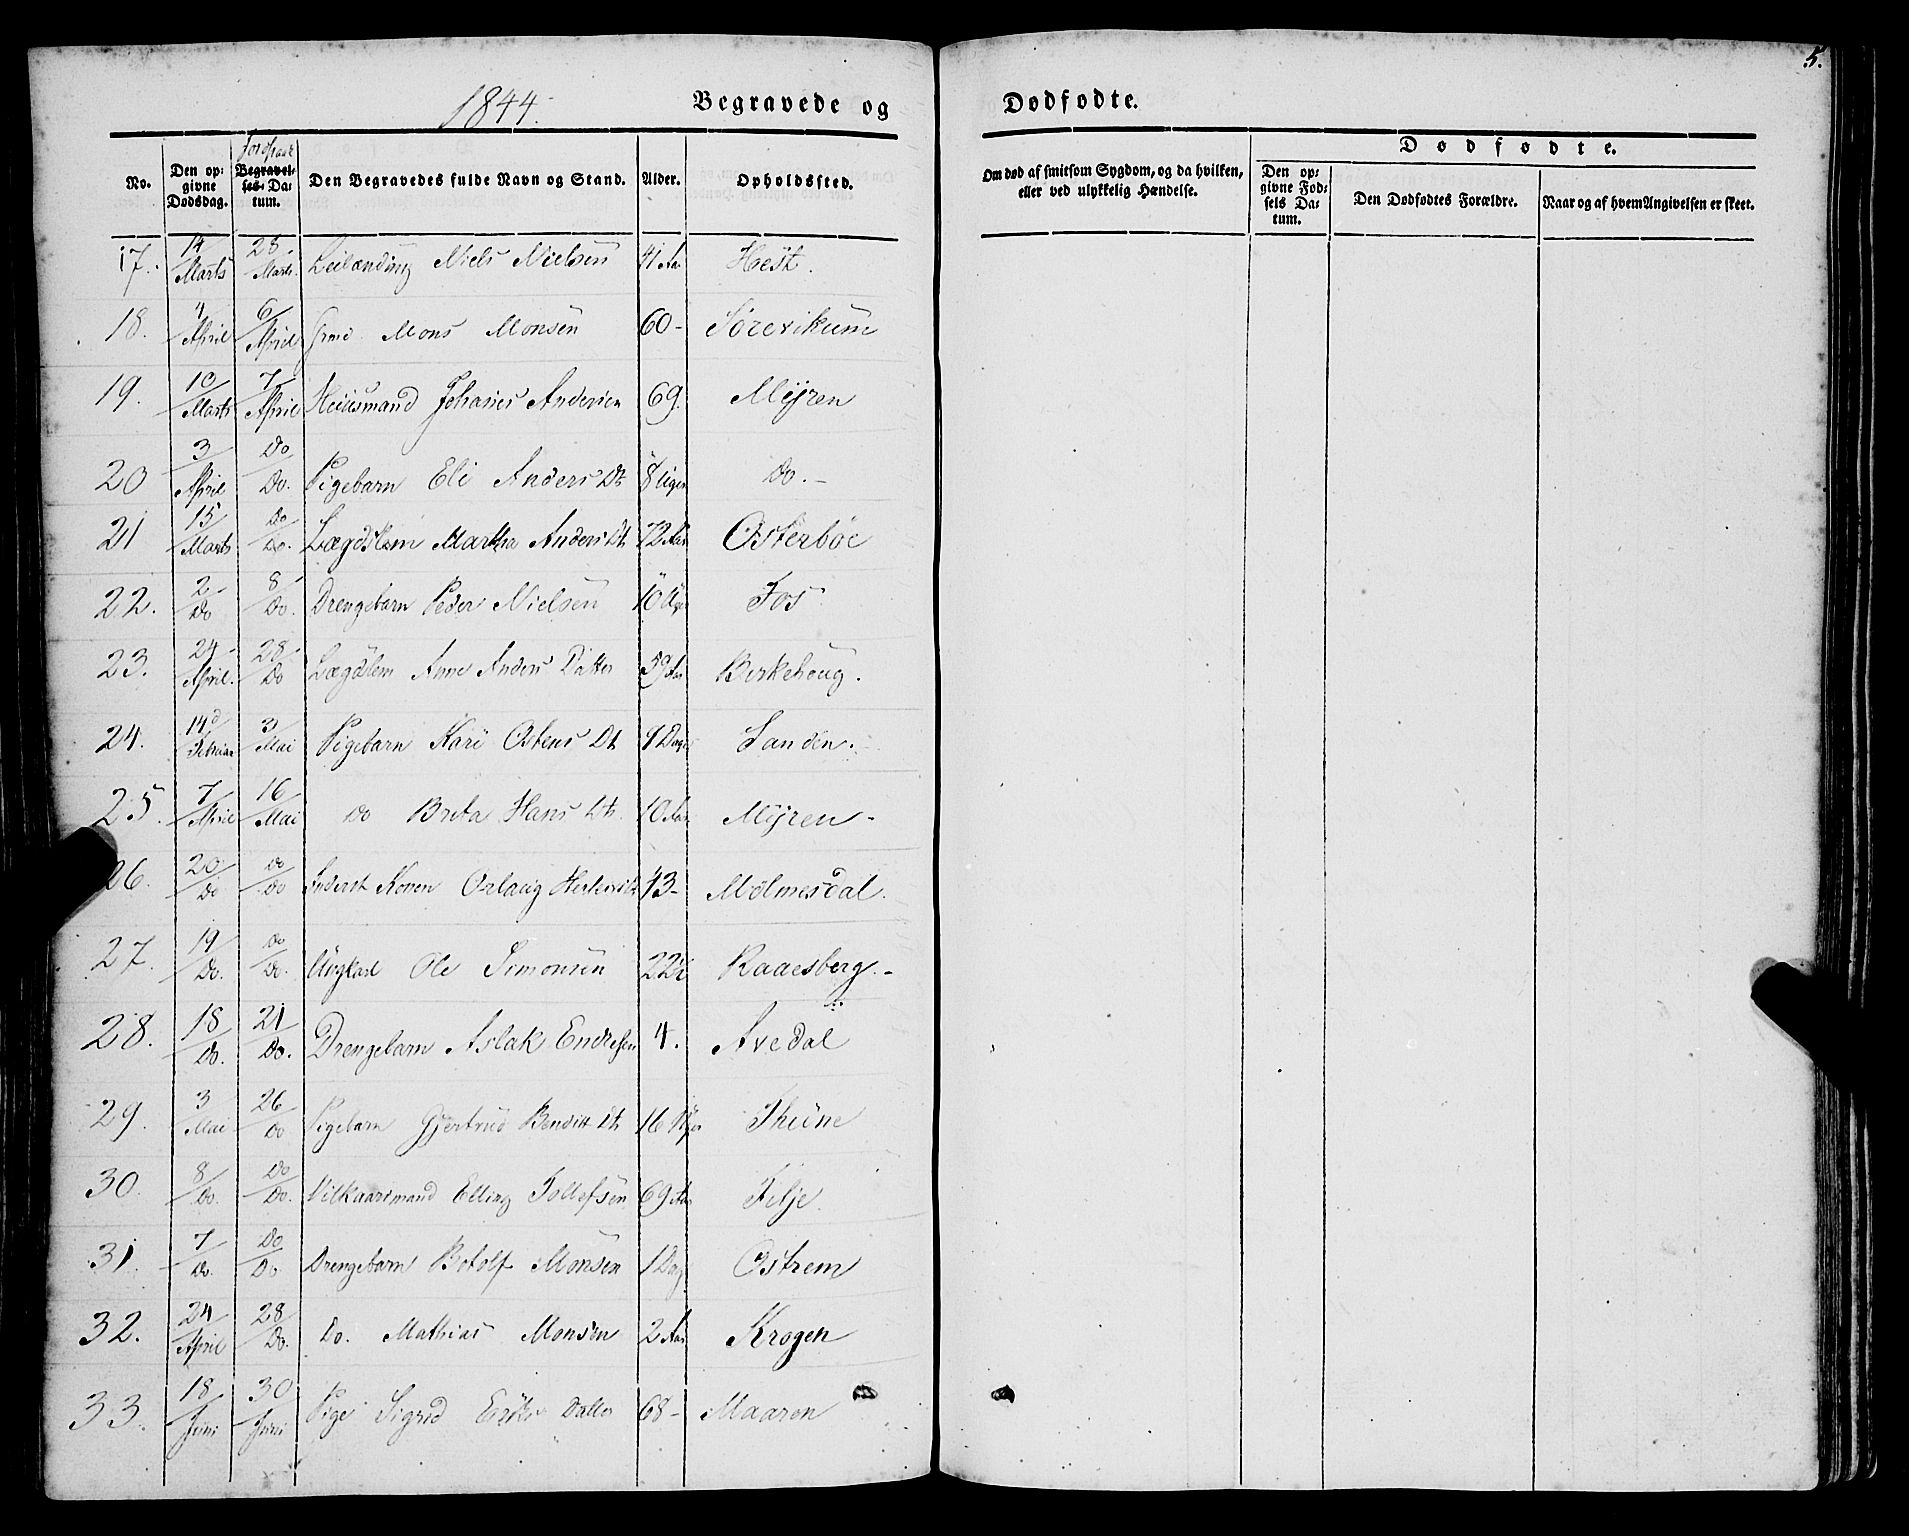 5.
1844.
Begravede og Dødfødte.
Jordpaak
No. Den op= givne Dødsdag. Begravel= ses= Da= tum. Den Begravedes fulde Navn og Stand. Alder. Opholdssted. Om død af smitsom Sygdom, og da hvilken, eller ved ulykkelig Hændelse. Dødfødte. Den op= givne Fød= sels Da= tum. Den Dødfødtes Forældre. Naar og af hvem Angivelsen er skeet.
17. 14/Marts 25/Marts Leilænding Niels Nielsen 41 Aar Hest.
18. 4/April 6/April Grmd. Mons Monsen 60 - Sørevikum
19. 10/Marts 7/April Huusmand Johanes Andersen 69. Myren
20 3/April Do/Do. Pigebarn Eli Anders Dt 8 Uger Do. -
21 15/Marts Do/Do. Lægdslem Martha Anders Dt 72 Aar Osterbøe
22. 2/Do 8/Do. Drengebarn Peder Nielsen 10 Uger Fos
23. 24/April. 28/Do Lægdslem Anne Anders Datter 59 Aar Birkehoug.
24. 14d/Februar 3/Mai Pigebarn Kari Ostens Dt 9 Dage Sanden.
25. 7/April 16/Mai Do Brita Hans Dtr. 10 Aar Myren -
26. 20/Do Do/Do Inderst Konen Orlaug 43 - Mølmesdal.
27. 19/Do. Do/Do. Ungkarl Ole Simonsen 22 Raaesberg. -
28. 18/Do. 21/Do. Drengebarn Aslak Endresen 4. Avedal
29. 3/Mai 26/Do Pigebarn Gjertrud Bendikt Dt 16 Uger Thune
30. 8/Do. Do/Do. Vilkaarsmand Elling Tollefsen 69 Aar Filje.
31. 7/Do. Do/Do. Drengebarn Botolf Monsen 1 Dag Ostrem
32. 24/April 28/Do. Do. Mathias Monsen 2 Aar Krogen
33. 18/Juni 30/Juni Pige Sigrid Eriks Datter 68 - Maaren